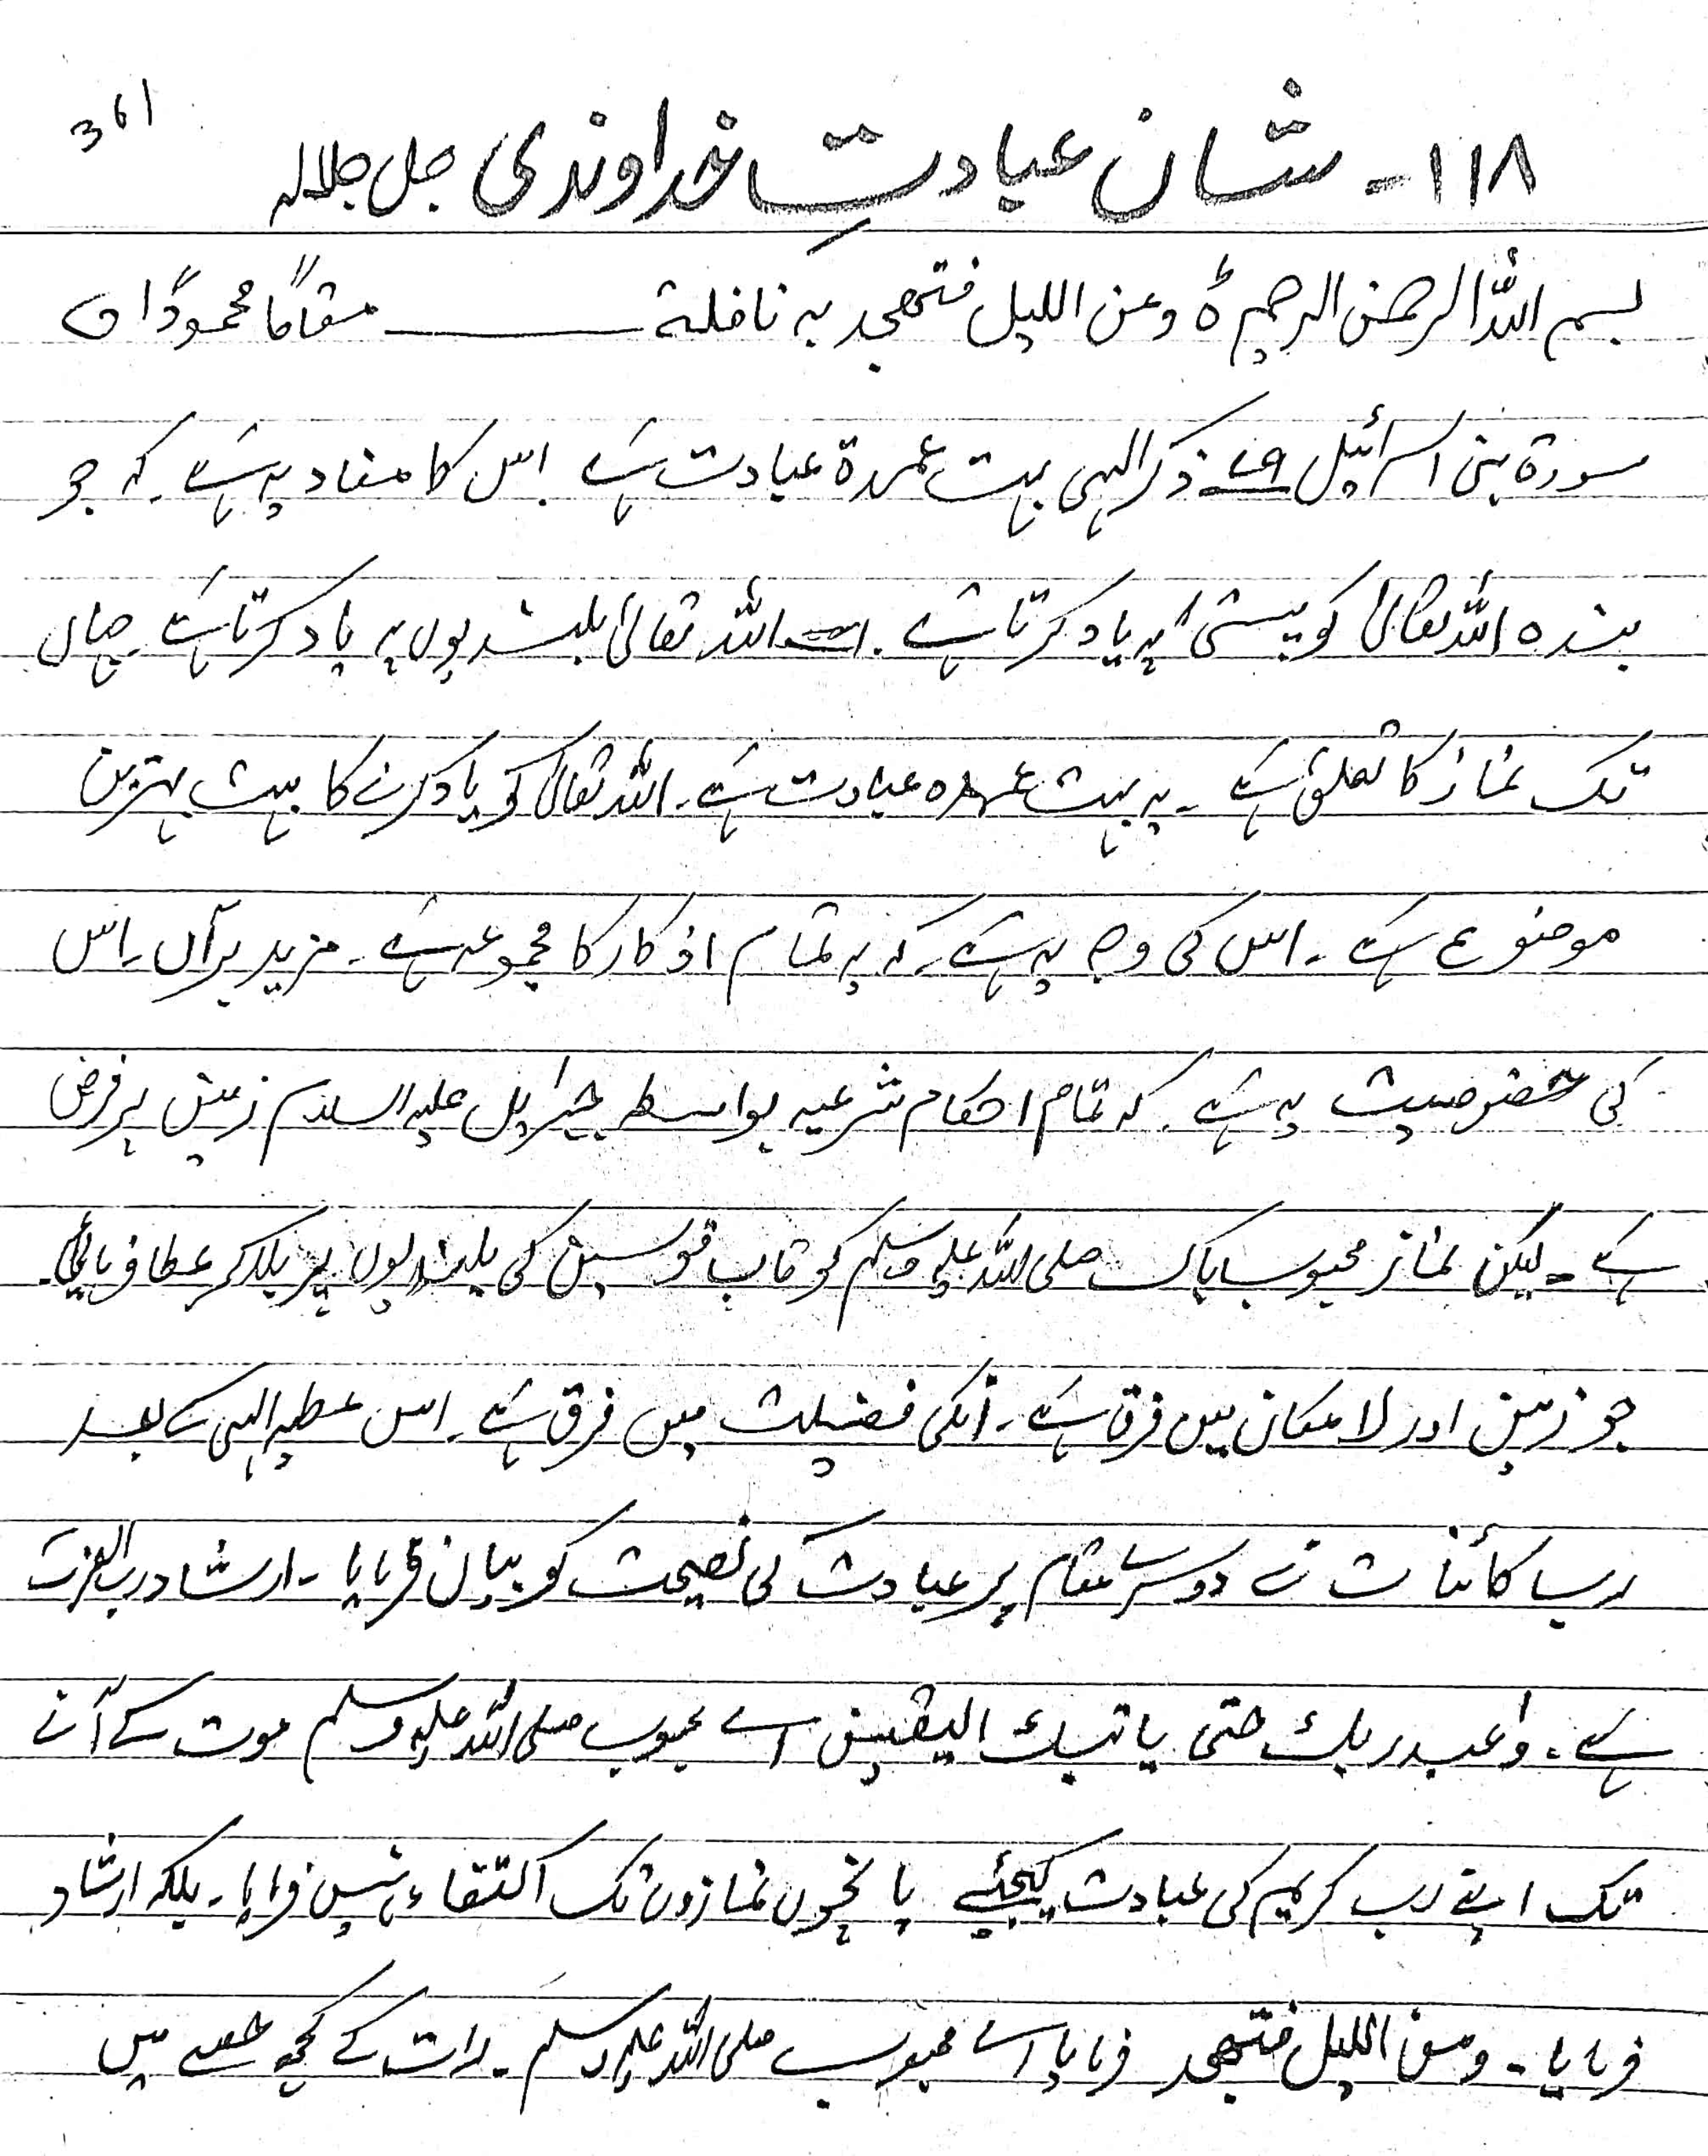 361
۱۱۸- شان عبادتِ خداوندی جل جلالہ
بسم اللہ الرحمن الرحیم ہ ومن الليل فتهجد به نافلة ——— مقامًا محمودًا
سورة بنی اسرائیل ۷۹ ذکر الہی بہت عمدة عبادت ہے اس کا مفاد یہ ہے۔ کہ جو
بندہ اللہ تعالیٰ کو پستی پہ یاد کرتا ہے۔ اللہ تعالیٰ بلندیوں پہ یاد کرتا ہے۔ جہاں
تک نماز کا تعلق ہے ۔ یہ بہت عمدہ عبادت ہے۔ اللہ تعالیٰ کو یاد کرنے کا بہت بہترین
موضوع ہے ۔ اس کی وجہ یہ ہے۔ کہ یہ تمام اذکار کا مجموعہ ہے ۔ مزید برآں ۔ اس
کی خصوصیت یہ ہے ۔ کہ تمام احکام شرعیہ بواسطہ جبرائیل علیہ السلام زمین پر فرض
ہے ۔ لیکن نماز محبوب پاک صلی اللہ علیہ وسلم کو قاب قوسین کی بلندیوں پر بلا کر عطا فرمائی۔
جو زمین اور لا مکان میں فرق ہے ۔ انکی فضیلت میں فرق ہے ۔ اس عطیہ الہی کے بعد
رب کائنات نے دوسرے مقام پر عبادت کی نصیحت کو بیان فرمایا ۔ ارشاد رب العزت
ہے ۔ واعبد ربك حتى ياتيك اليقين اے محبوب صلی اللہ علیہ وسلم موت کے آنے
تک اپنے رب کریم کی عبادت کیجئے پانچوں نمازوں تک اکتفاء نہیں فرمایا ۔ بلکہ ارشاد
فرمایا ۔ ومن الليل فتهجد فرمایا اے محبوب صلی اللہ علیہ وسلم ۔ رات کے کچھ حصے میں